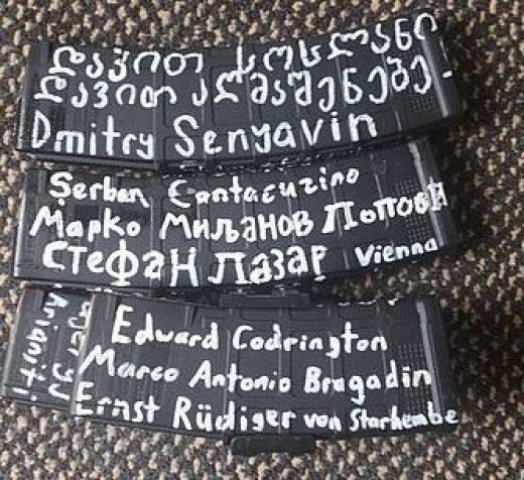 დავით სოსლანი
დავით აღმაშენებე
Dmitry Senyavin
Şerban Cantacuzino
Марко Миљанов Попови
Стефан Лазар Vienna
Edward Codrington
Marco Antonio Bragadin
Ernst Rüdiger von Starhembe
Arianiti